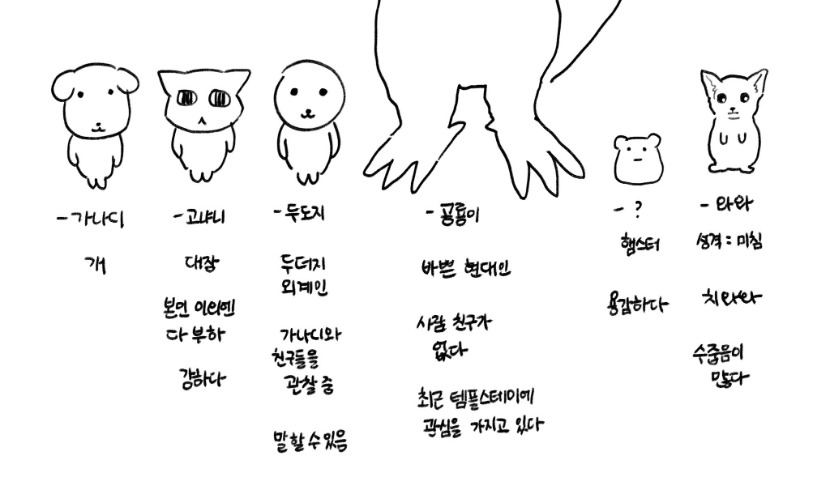 - 가나디
개
- 고냐니
대장
본인 이외엔
다 부하
강하다
- 두도지
두더지
외계인
가나디와
친구들을
관찰 중
말할 수 있음
- 공룡이
바쁜 현대인
사람 친구가
없다
최근 템플스테이에
관심을 가지고 있다
- ?
햄스터
용감하다
- 와와
성격 : 미침
치와와
수줍음이
많다